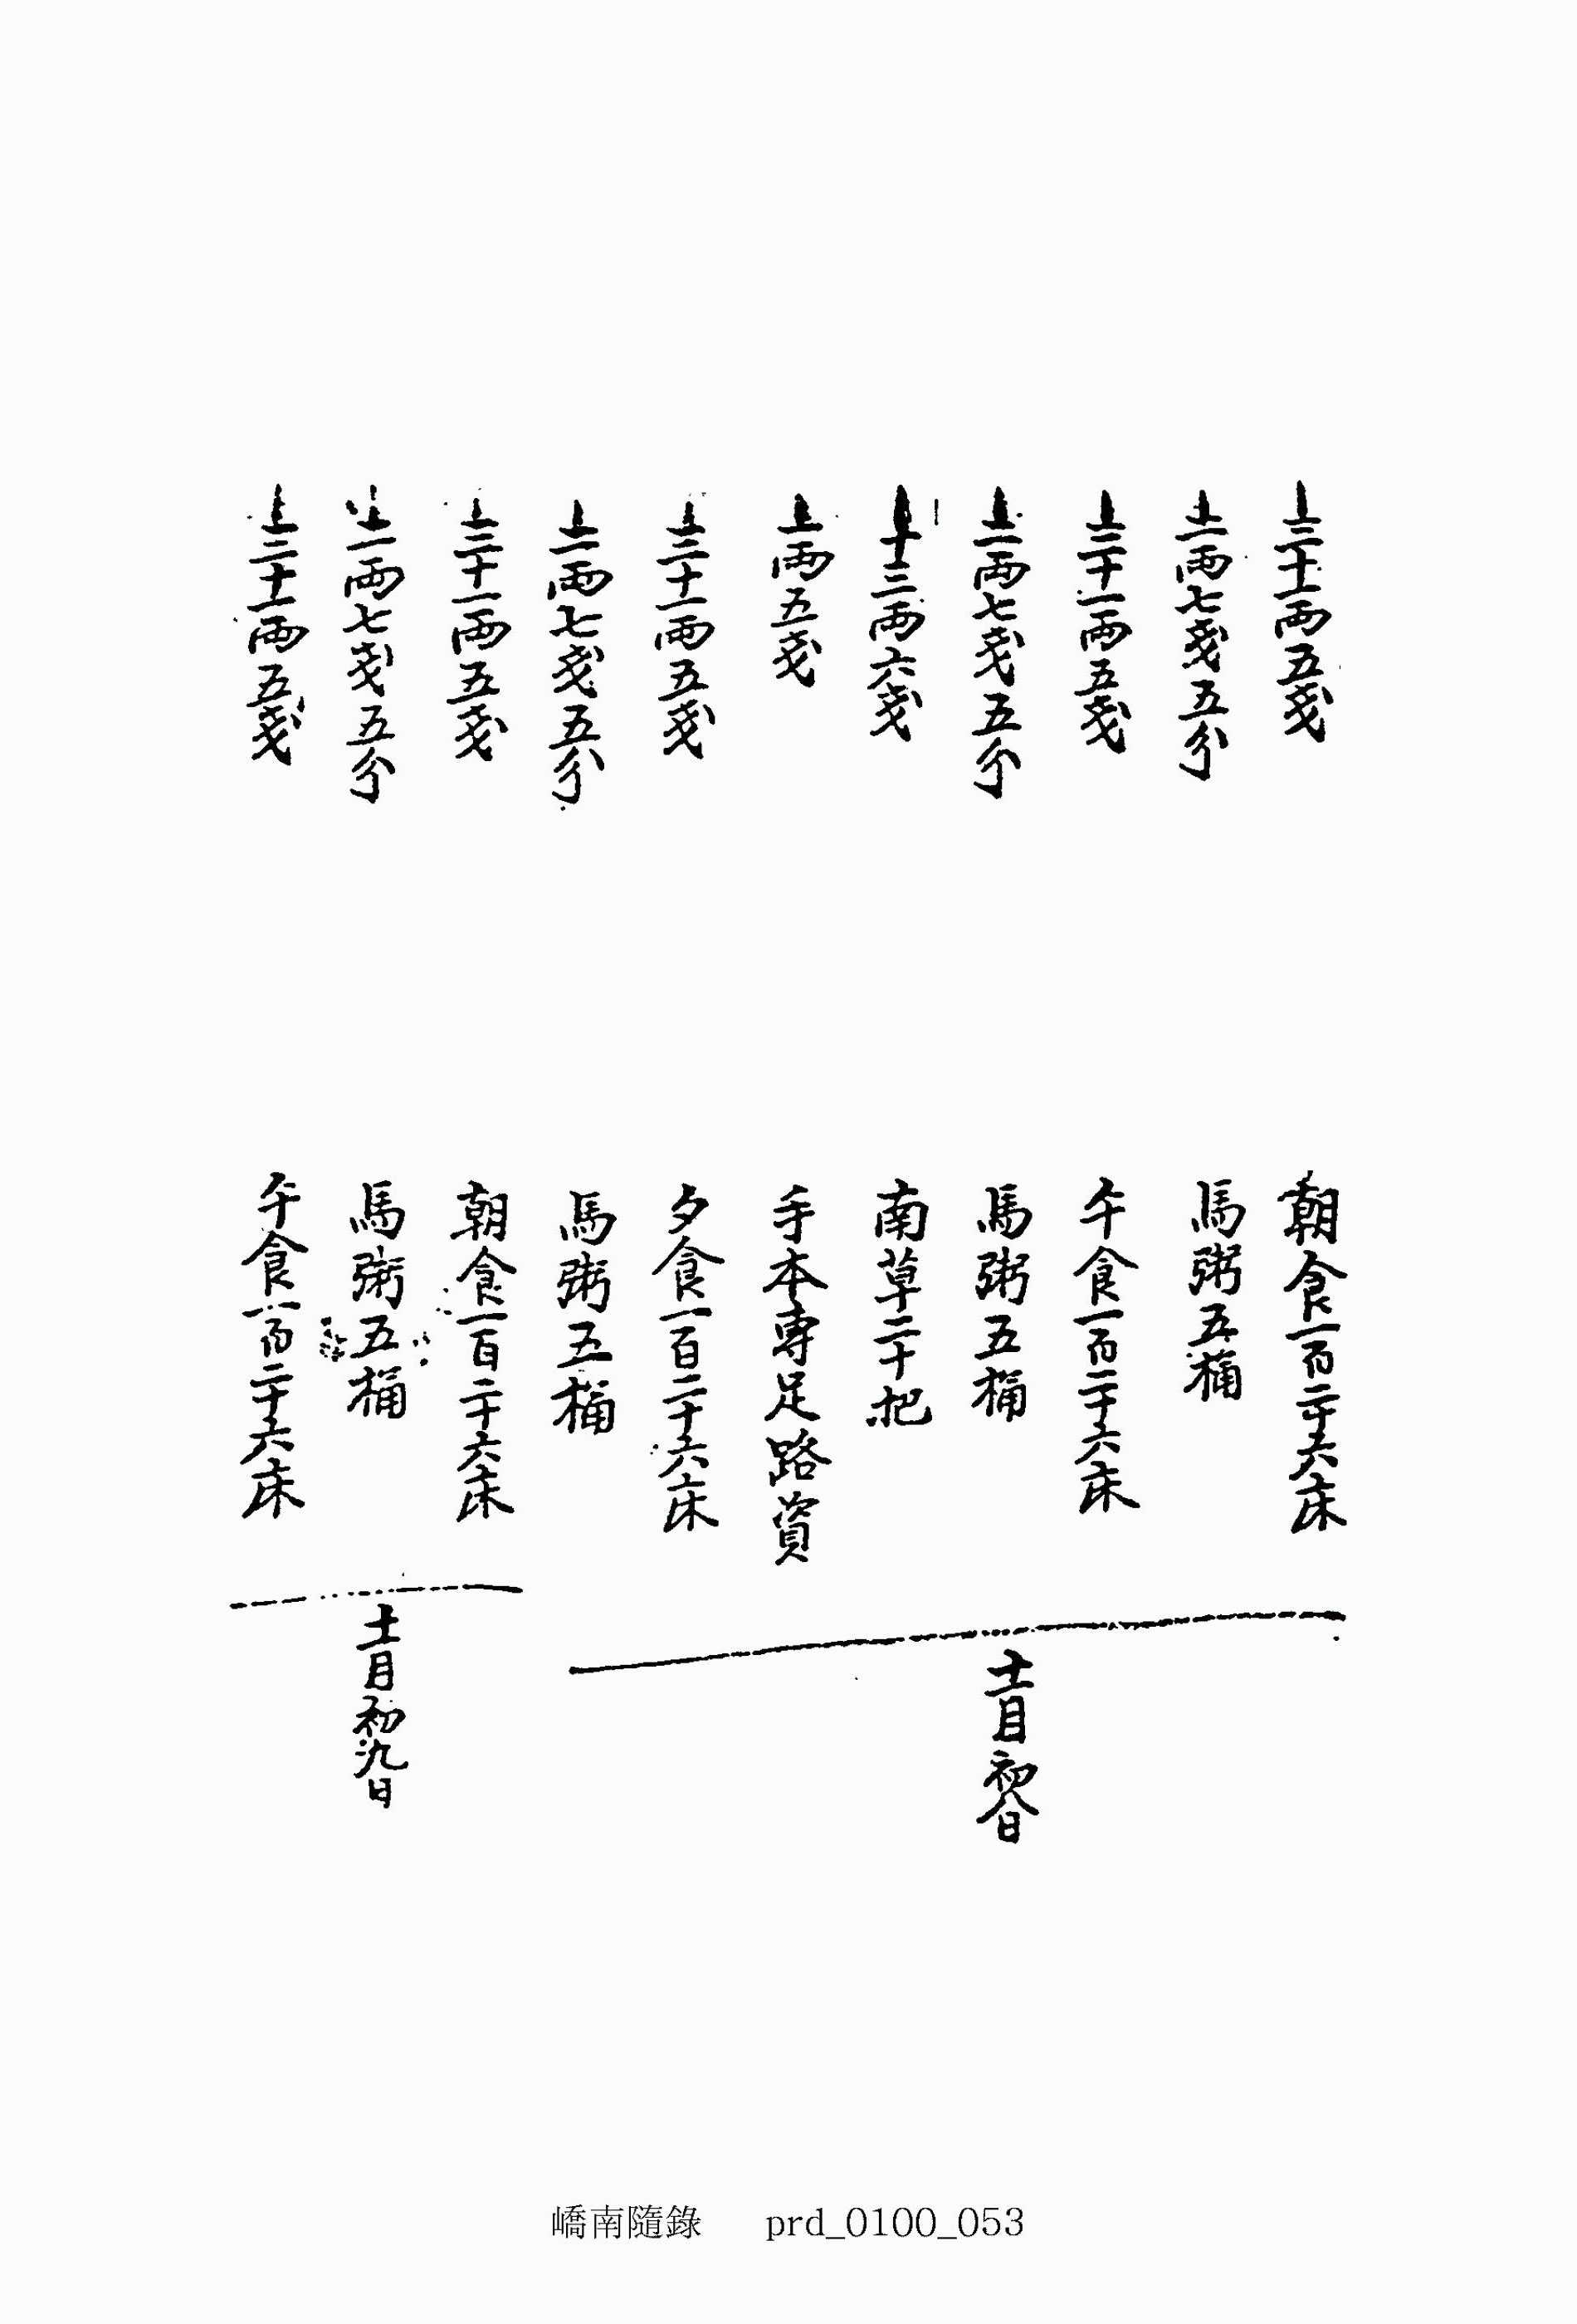 上三十一兩五戔 朝食一百二十六床
上一兩七戔五分 馬粥五桶
上三十一兩五戔 午食一百二十六床
上一兩七戔五分 馬粥五桶
上十三兩六戔 南草二十把
上兩五戔 手本專足路資
上三十一兩五戔 夕食一百二十六床
上一兩七戔五分 馬粥五桶
十一月初八日
上三十一兩五戔 朝食一百二十六床
上一兩七戔五分 馬粥五桶
上三十一兩五戔 午食一百二十六床
十一月初九日
嶠南隨錄 prd_0100_053